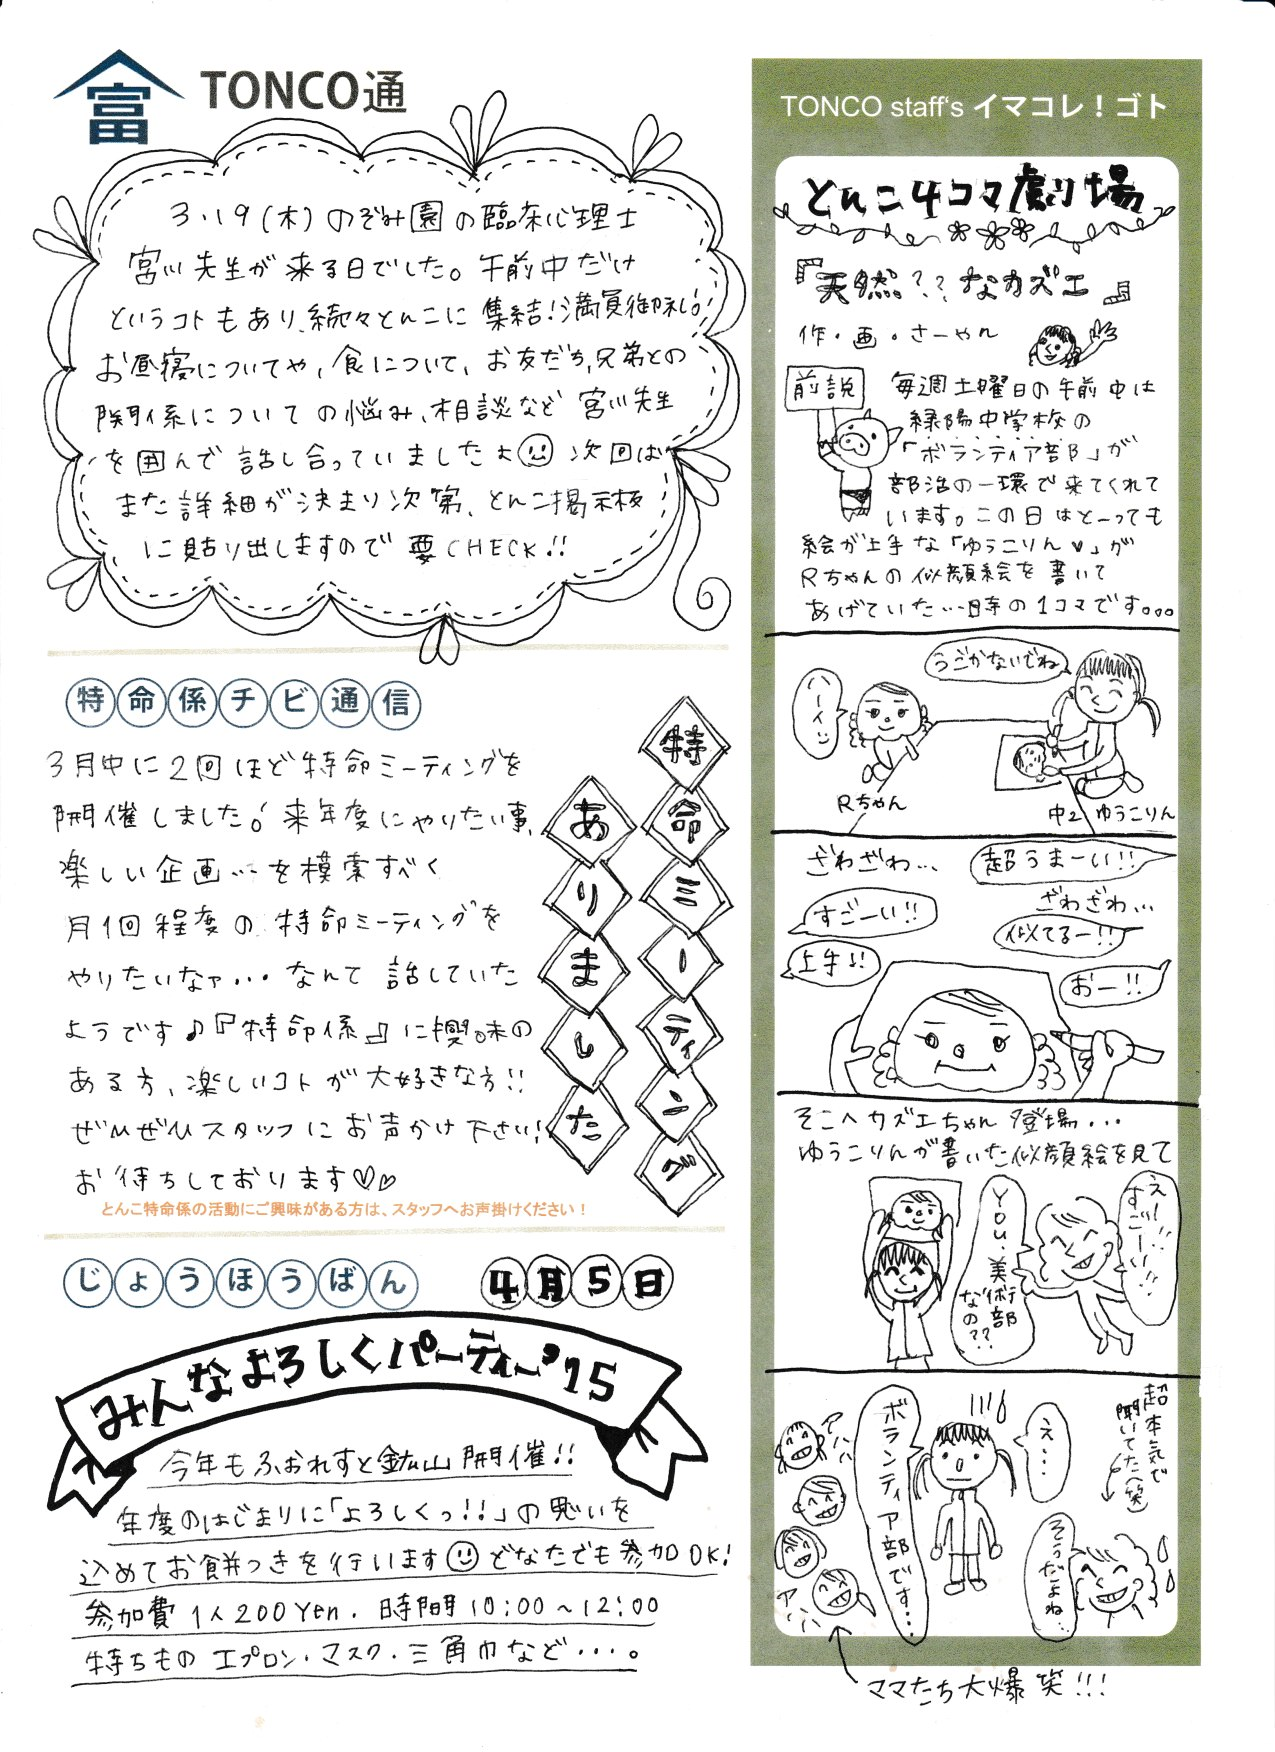 富
TONCO通
3.19(木)のぞみ園の臨床心理士
宮川先生が来る日でした。午前中だけ
というコトもあり、続々とんこに集結!満員御礼!
お昼寝についてや、食について、お友だち,兄弟との
関係についての悩み、相談など宮川先生
を囲んで話し合っていましたよ 次回は
また詳細が決まり次第、とんこ掲示板
に貼り出しますので要CHECK!!
特命係チビ通信
3月中に2回ほど特命ミーティングを
開催しました! 来年度にやりたい事、
楽しい企画...を模索すべく
月1回程度の特命ミーティングを
やりたいなァ...なんて話していた
ようです♪『特命係』に興味の
ある方、楽しいコトが大好きな方!!
ぜひぜひスタッフにお声かけ下さい!
お待ちしております♡♡
特命ミーティング
ありました
とんこ特命係の活動にご興味がある方は、スタッフへお声掛けください！
じょうほうばん
4月5日
みんなよろしくパーティー'15
今年もふぉれすと鉱山開催!!
年度のはじまりに「よろしくっ!!」の思いを
込めてお餅つきを行います どなたでも参加OK!
参加費 1人200Yen. 時間10:00~12:00
持ちもの エプロン・マスク・三角巾など・・・。
TONCO staff's イマコレ！ゴト
とんこ4コマ劇場
『天然??なカズエ』
作・画・さーやん
前説
毎週土曜日の午前中は
緑陽中学校の
「ボランティア部」が
部活の一環で来てくれて
います。この日はとーっても
絵が上手な「ゆうこりん♥」が
Rちゃんの似顔絵を書いて
あげていた...時の1コマです。。。
うごかないでね
ハーイ
Rちゃん
中2 ゆうこりん
ざわざわ...
超うまーい!!
すごーい!!
ざわざわ...
似てるー!!
上手!!
おー!!
そこへカズエちゃん登場...
ゆうこりんが書いた似顔絵を見て
えー!すごーい!!
YOU.美術部なの??
超本気で聞いてた(笑)
え...
ボランティア部です...
アハハ
そうだよね..
アハハ
ママたち大爆笑!!!